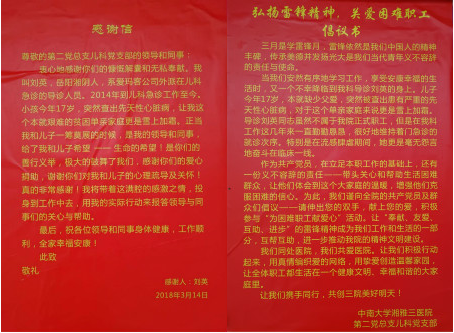 感谢信
尊敬的第二党总支儿科党支部的领导和同事：
衷心地感谢你们的慷慨解囊和无私奉献。我
叫刘英，岳阳湘阴人，系爱玛客公司外派在儿科
急诊的导诊人员。2014年到儿科急诊工作至今。
小孩今年17岁，突然查出先天性心脏病，让我这
个本就艰难的贫困单亲家庭更是雪上加霜。正当
我和儿子一筹莫展的时候，是我的领导和同事，
给了我和儿子希望 —— 生命的希望！是你们的
善行义举，极大的鼓舞了我们，感谢你们的爱心
捐助，谢谢你们对我和儿子的心理疏导及关怀！
真的非常感谢！我将带着这满腔的感激之情，投
身到工作中去，用我的实际行动来报答领导与同
事们的关心与帮助。
最后，祝各位领导和同事身体健康，工作顺
利，全家幸福安康！
此致
敬礼
感谢人：刘英
2018年3月14日
弘扬雷锋精神，关爱困难职工
倡议书
三月是学雷锋月，雷锋依然是我们中国人的精神
丰碑，传承美德并发扬光大是我们当代青年义不容辞
的责任与使命。
当我们安然有序地学习工作，享受安康幸福的生
活时，又一个不幸降临到我科导诊刘英的身上。儿子
今年17岁，本就缺少父爱，突然被查出患有严重的先
天性心脏病，对于这个单亲家庭来说更是雪上加霜。
导诊刘英同志虽然不属于我院正式职工，但是在我科
工作这几年来一直勤勤恳恳，很好地维持着门急诊的
就诊次序。特别是在流感肆虐期间，她更是毫无怨言
地奋斗在临床一线。
作为共产党员，在立足本职工作的基础上，还有
一份义不容辞的责任——带头关心和帮助生活困难
群众，让他们体会到这个大家庭的温暖，增强他们克
服困难的信心。为此，我们谨向全院的共产党员及群
众们倡议——请伸出您的双手，献上您的爱，积极
参与“为困难职工献爱心”活动。让“奉献、友爱、
互助、进步”的雷锋精神成为我们工作和生活的一部
分，互帮互助，进一步推动我院的精神文明建设。
我们同处医院，我们共爱医院。让我们积极行动
起来，用真情编织爱的网络，用挚爱创造温馨家园，
让全体职工都生活在一个健康文明、幸福和谐的大家
庭里。
让我们携手同行，共创三院美好明天！
中南大学湘雅三医院
第二党总支儿科党支部